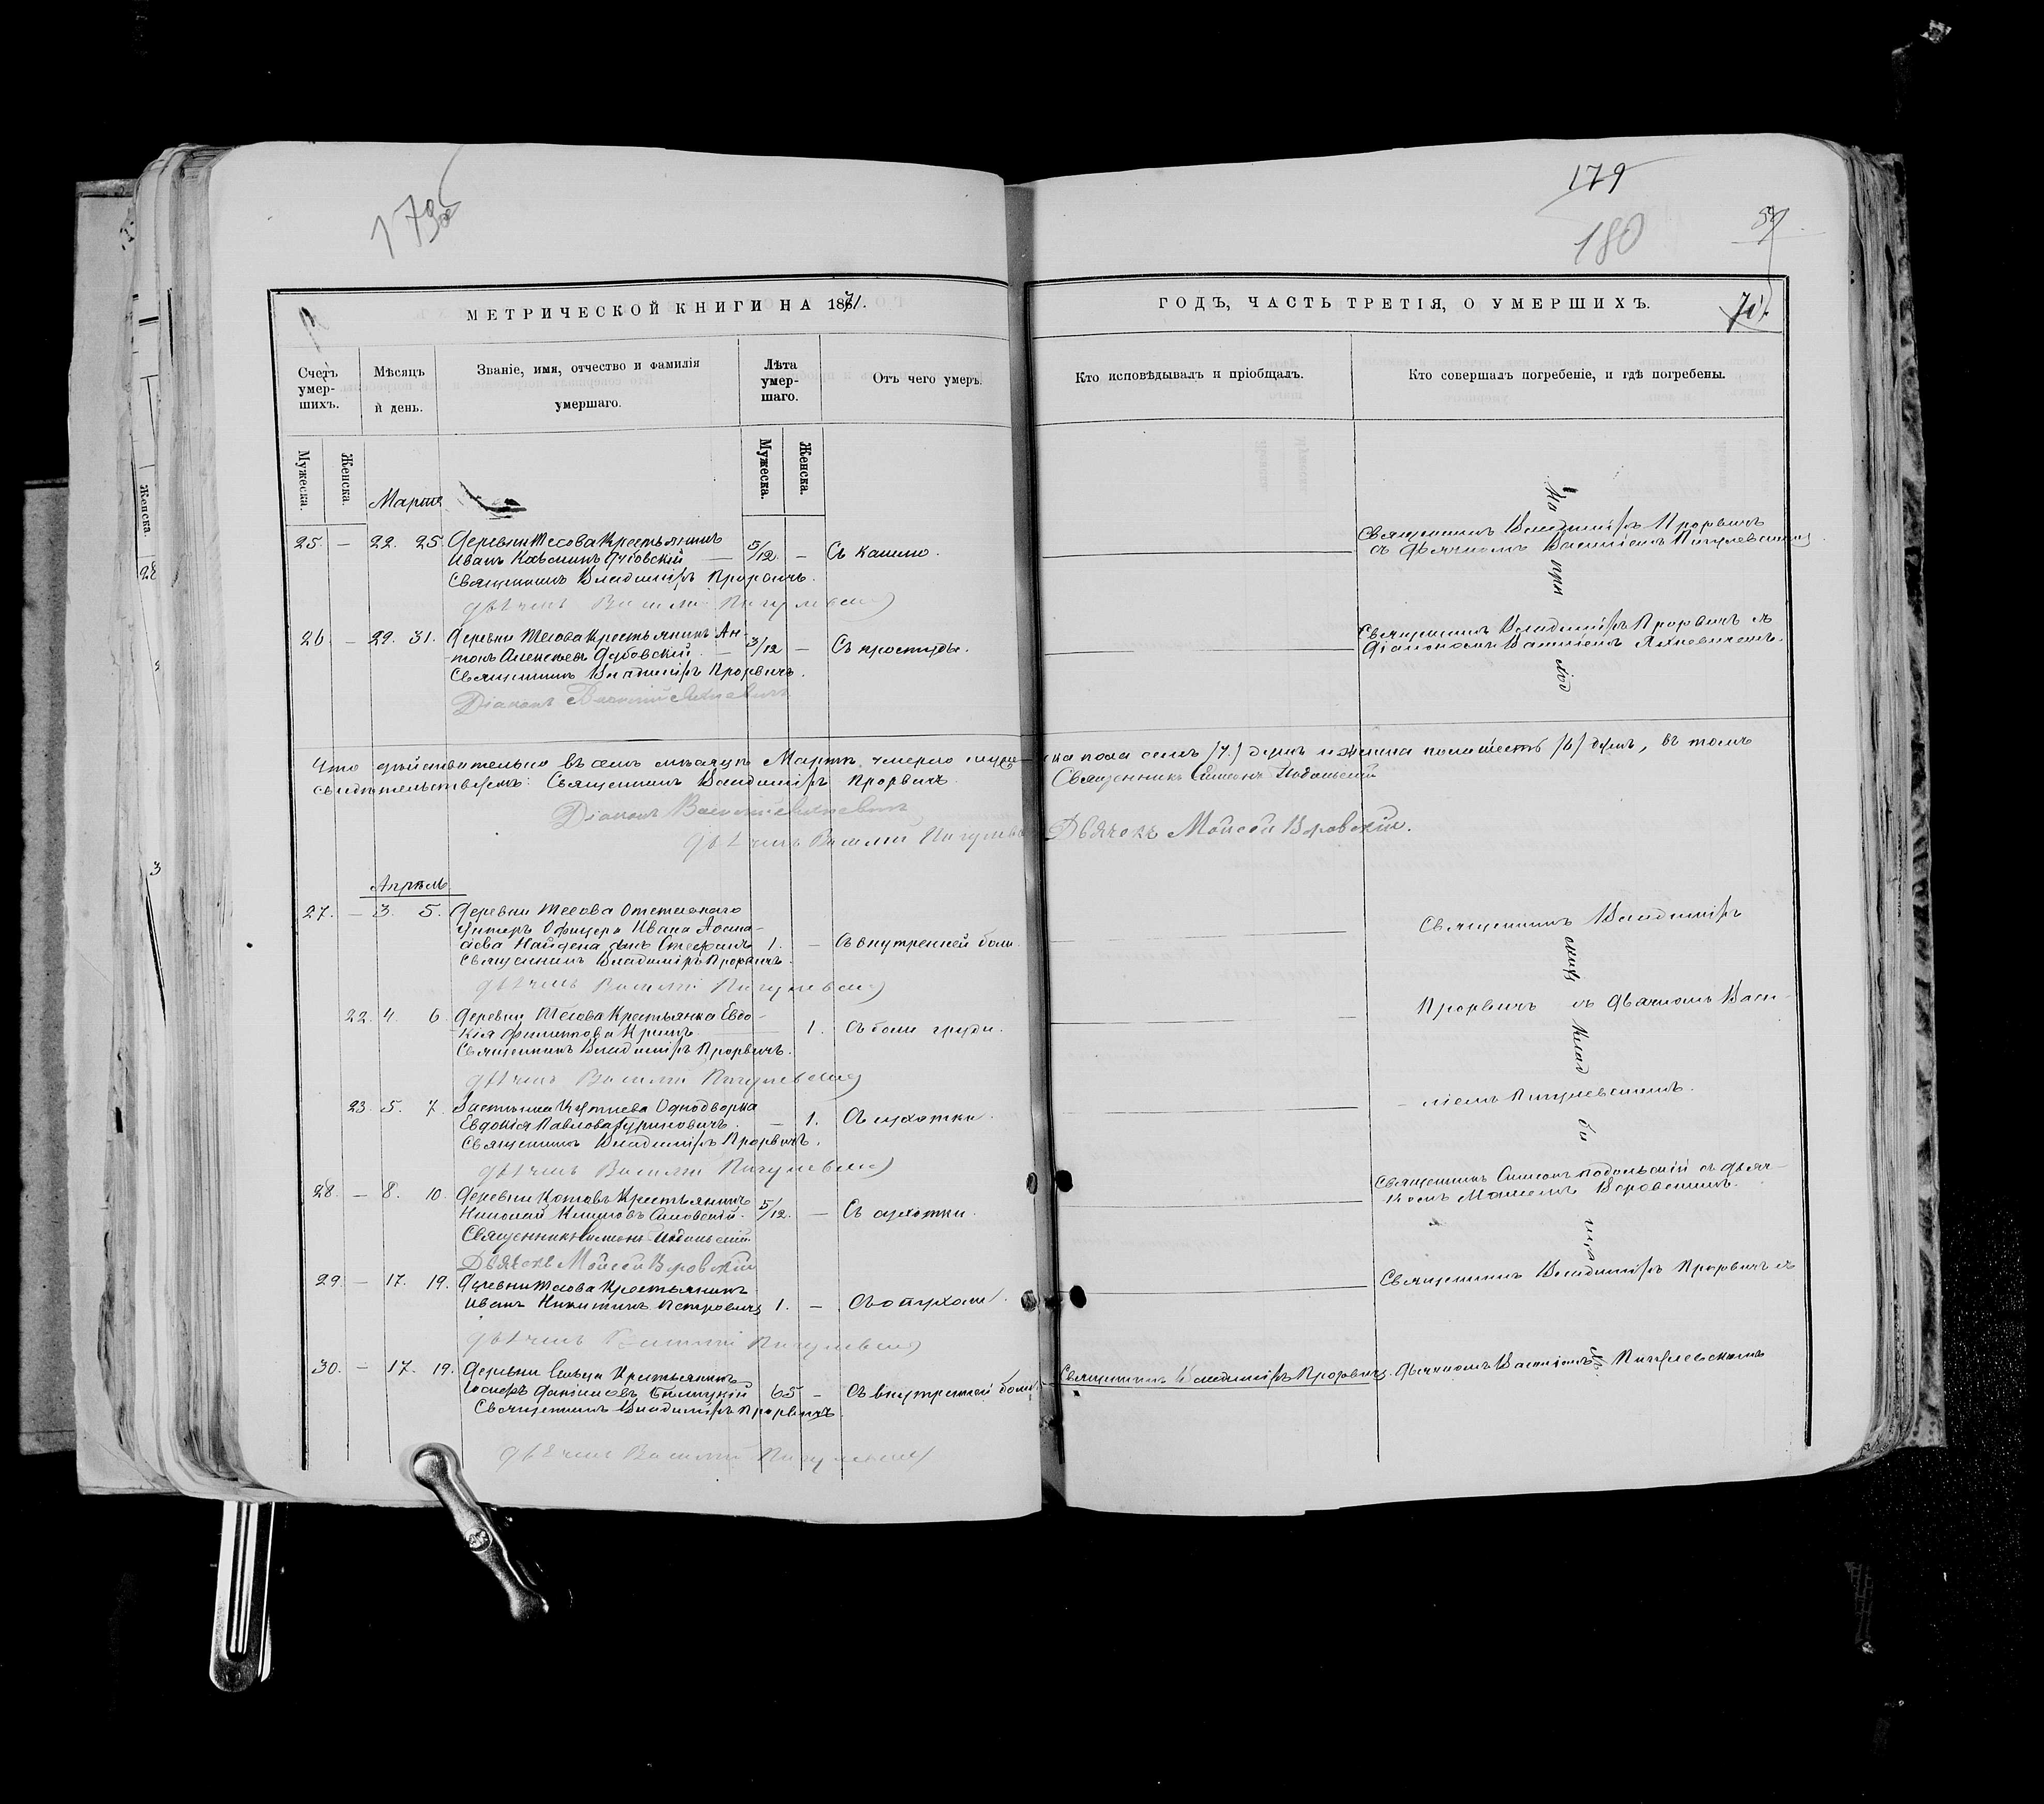 179
180
МЕТРИЧЕСКОЙ КНИГИ НА 1871.
ГОДЪ, ЧАСТЬ ТРЕТІЯ, О УМЕРШИХЪ.
Счетъ умер-шихъ.
Мѣсяцъ и день.
Званіе, имя, отчество и фамилія умершаго.
Лѣта умер-шаго.
Отъ чего умеръ.
Кто исповѣдывалъ и пріобщалъ.
Кто совершалъ погребеніе, и гдѣ погребены.
Мужеска.
Женска.
Мужеска.
Женска.
Мартъ
25. — 22. 25. Деревни Тесова Крестьянинъ 5/12. — Съ кашлю.
Иванъ
Священникъ Владиміръ Прорвичъ.
Дьячекъ Василій Пигулевскій
Священникъ Владиміръ Прорвичъ
съ Дьячкомъ Василіемъ Пигулевскимъ.
26 — 29. 31. Деревни Тесова Крестьянинъ Ан- 3/12 — Съ простуды.
тонъ Алексѣевъ Дубовскій.
Священникъ Владиміръ Прорвичъ.
Діаконъ Василій Яхневичъ
Священникъ Владиміръ Прорвичъ съ
Діакономъ Василіемъ Яхневичемъ.
Что дѣйствительно въ семъ мѣсяцѣ Мартѣ умерло муже-ска пола семь /7./ душъ и женска пола шесть /6/ душъ, въ томъ
свидѣтельствуемъ: Священникъ Владиміръ Прорвичъ. Священникъ Симеонъ Подольскій
Діаконъ Василій Яхневичъ
Дьячекъ Василій Пигулевскій Дьячекъ Моисей Воровскій.
Апрѣль
27. — 3. 5. Деревни Тесова Отставнаго
Унтеръ Офицера Ивана
Найдена сынъ Стефанъ 1. — Съ внутренней боли.
Священникъ Владиміръ Прорвичъ.
Дьячекъ Василій Пигулевскій
Священникъ Владиміръ
22. 4. 6. Деревни Тесова Крестьянка Евдо-
кія Филиппова 1. Съ боли груди.
Священникъ Владиміръ Прорвичъ.
Дьячекъ Василій Пигулевскій
Прорвичъ съ Дьячкомъ Васи-
23. 5. 7. Застѣнка Однодворка
Евдокія Павлова Гуриновичъ. — 1. Съ сухотки.
Священникъ Владиміръ Прорвичъ.
Дьячекъ Василій Пигулевскій
ліемъ Пигулевскимъ.
28. — 8. 10. Деревни Крестьянинъ 5/12. — Съ сухотки.
Николай Климовъ
Священникъ Симеонъ Подольскій
Дьячекъ Моисей Воровскій
Священникъ Симеонъ Подольскій съ Дьяч-
комъ Моисеемъ Воровскимъ.
29. — 17. 19. Деревни Тесова Крестьянинъ
Иванъ Никитинъ Петровичъ 1. — Съ опухоли.
Дьячекъ Василій Пигулевскій
Священникъ Владиміръ Прорвичъ съ
30. — 17. 19. Деревни Крестьянинъ
Іосифъ Даніиловъ 65 — Съ внутренней боли. Священникъ Владиміръ Прорвичъ. Дьячкомъ Василіемъ Пигулевскимъ
Священникъ Владиміръ Прорвичъ.
Дьячекъ Василій Пигулевскій
На при ход скомъ клад би щѣ